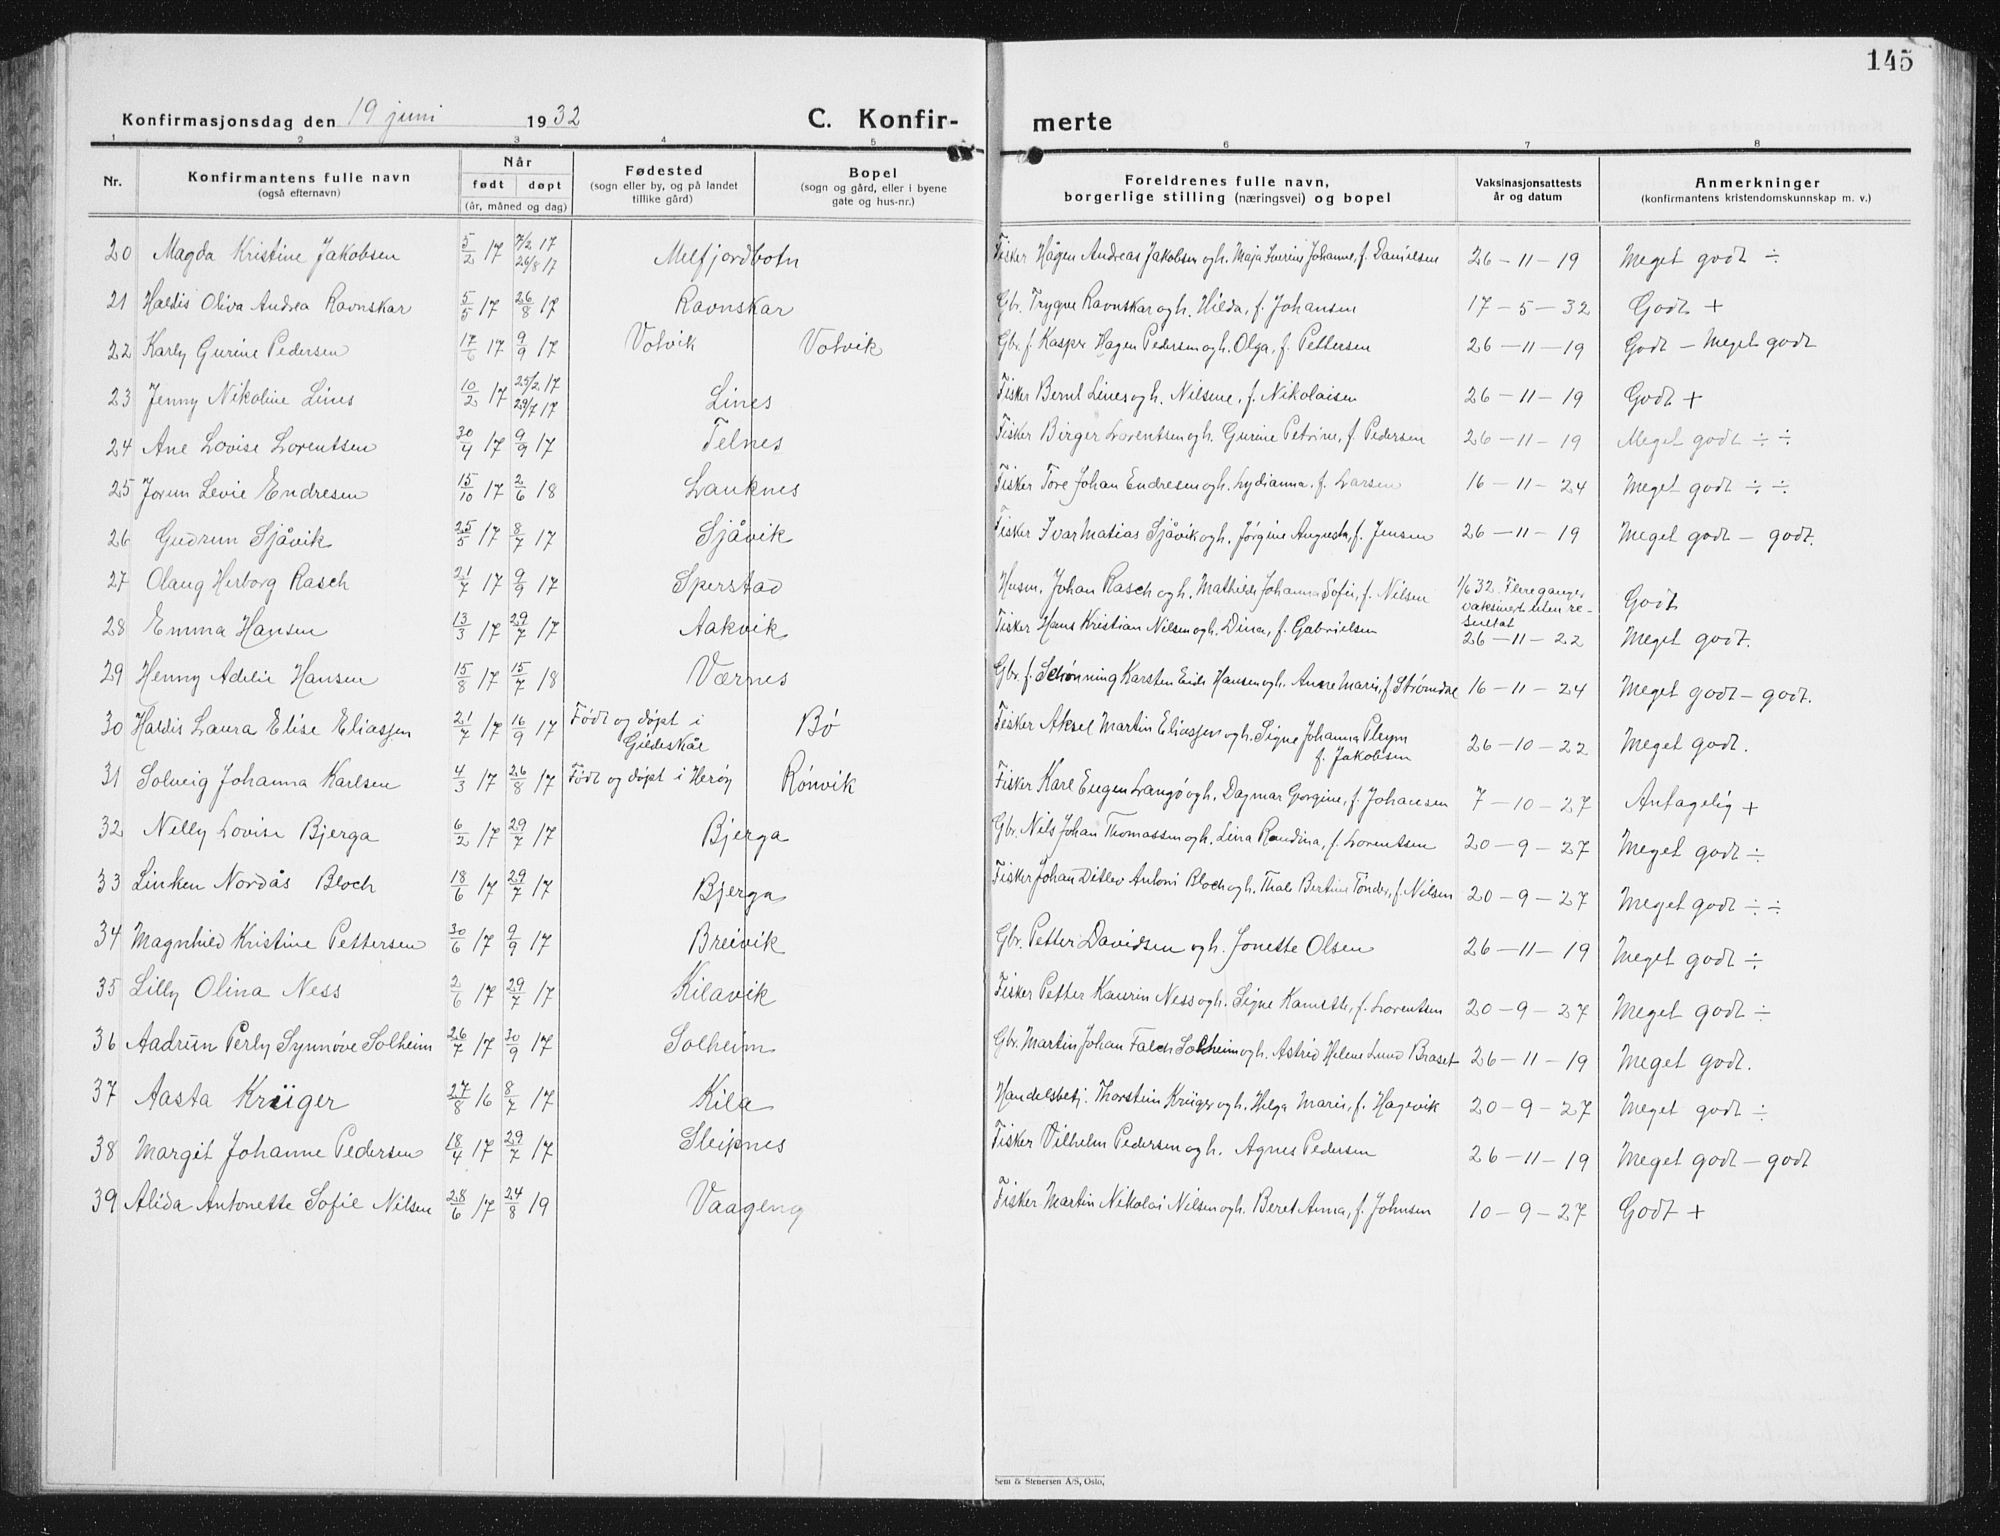 145
Konfirmasjonsdag den 19 juni 1932 C. Konfir- merte
1 2 3 4 5 6 7 8
Nr. Konfirmantens fulle navn (også efternavn) Når født døpt (år, måned og dag) Fødested (sogn eller by, og på landet tillike gård) Bopel (sogn og gård, eller i byene gate og hus-nr.) Foreldrenes fulle navn, borgerlige stilling (næringsvei) og bopel Vaksinasjonsattests år og datum Anmerkninger (konfirmantens kristendomskunnskap m. v.)
20 Magda Kristine Jakobsen 5/2 17 7/2 17 26/8 17 Melfjordbotn Fisker Hågen Andreas Jakobsen og h. Maja Iverine Johanne, f. Danielsen 26-11-19 Meget godt ÷
21 Haldis Oliva Andrea Ravnskar 5/5 17 26/8 17 Ravnskar Gbr. Trygve Ravnskar og h. Hilda, f. Johansen 17-5-32 Godt +
22 Karly Gurine Pedersen 17/6 17 9/9 17 Votvik Votvik Gbr. f. Kasper Hagen Pedersen og h. Olga, f. Pettersen 26-11-19 Godt - Meget godt
23 Jenny Nikoline Lines 10/2 17 25/2 17 29/7 17 Lines Fisker Bernt Lines og h. Nilsine, f. Nikolaisen 26-11-19 Godt +
24 Ane Lovise Lorentsen 30/4 17 9/9 17 Telnes Fisker Birger Lorentsen og h. Gurine Petrine, f. Pedersen 26-11-19 Meget godt ÷ ÷
25 Jorun Levie Endresen 15/10 17 2/6 18 Lauknes Fisker Tore Johan Endresen og h. Lydianna, f. Larsen 16-11-24 Meget godt ÷ ÷
26 Gudrun Sjåvik 25/5 17 8/7 17 Sjåvik Fisker Ivar Matias Sjåvik og h. Jørgine Augusta, f. Jensen 26-11-19 Meget godt - godt.
27 Olaug Herborg Rasch 21/7 17 9/9 17 Sperstad Husm. Johan Rasch og h. Mathilde Johanna Sofie, f. Nilsen 1/6 32. Flere ganger vaksinert uten re- sultat Godt
28 Emma Hansen 13/3 17 29/7 17 Aakvik Fisker Hans Kristian Nilsen og h. Dina, f. Gabrielsen 26-11-22 Meget godt.
29 Henny Adelie Hansen 15/8 17 15/7 18 Værnes Gbr. f. Schønning Karsten Hansen og h. Anne Marie, f. Strømdal 16-11-24 Meget godt - godt.
30 Haldis Laura Elise Eliassen 21/7 17 16/9 17 Født og døpt i Gildeskål Bø Fisker Aksel Martin Eliassen og h. Signe Johanna Pleym f. Jakobsen 26-10-22 Meget godt.
31 Solveig Johanna Karlsen 4/3 17 26/8 17 Født og døpt i Herøy Rønvik Fisker Karl Eugen Langø og h. Dagmar Georgine, f. Johansen 7-10-27 Antagelig +
32 Nelly Lovise Bjerga 6/2 17 29/7 17 Bjerga Gbr. Nils Johan Thomassen og h. Lina Randina, f. Lorentsen 20-9-27 Meget godt ÷
33 Linken Nordås Bloch 18/6 17 29/7 17 Bjerga Fisker Johan Ditlev Antoni Bloch og h. Thale Bertine Tønder, f. Nilsen 20-9-27 Meget godt ÷ ÷
34 Magnhild Kristine Pettersen 30/6 17 9/9 17 Breivik Gbr. Petter Davidsen og h. Jonette Olsen 26-11-19 Meget godt ÷
35 Lilly Olina Ness 2/6 17 29/7 17 Kilavik Fisker Petter Kaurin Ness og h. Signe Kanutte, f. Lorentsen 20-9-27 Meget godt ÷
36 Aadrun Perly Synnøve Solheim 26/7 17 30/9 17 Solheim Gbr. Martin Johan Falch Solheim og h. Astrid Helene Lund Braset 26-11-19 Meget godt.
37 Aasta Krüger 27/8 16 8/7 17 Kila Handelsbetj. Thorstein Krüger og h. Helga Marie, f. Hagevik 20-9-27 Meget godt ÷
38 Margit Johanne Pedersen 18/4 17 29/7 17 Sleipnes Fisker Vilhelm Pedersen og h. Agnes Pedersen 26-11-19 Meget godt - godt
39 Alida Antonette Sofie Nilsen 28/6 17 24/8 19 Vaageng Fisker Martin Nikolai Nilsen og h. Beret Anna, f. Johnsen 10-9-27 Godt +
Sem & Stenersen A/S, Oslo.